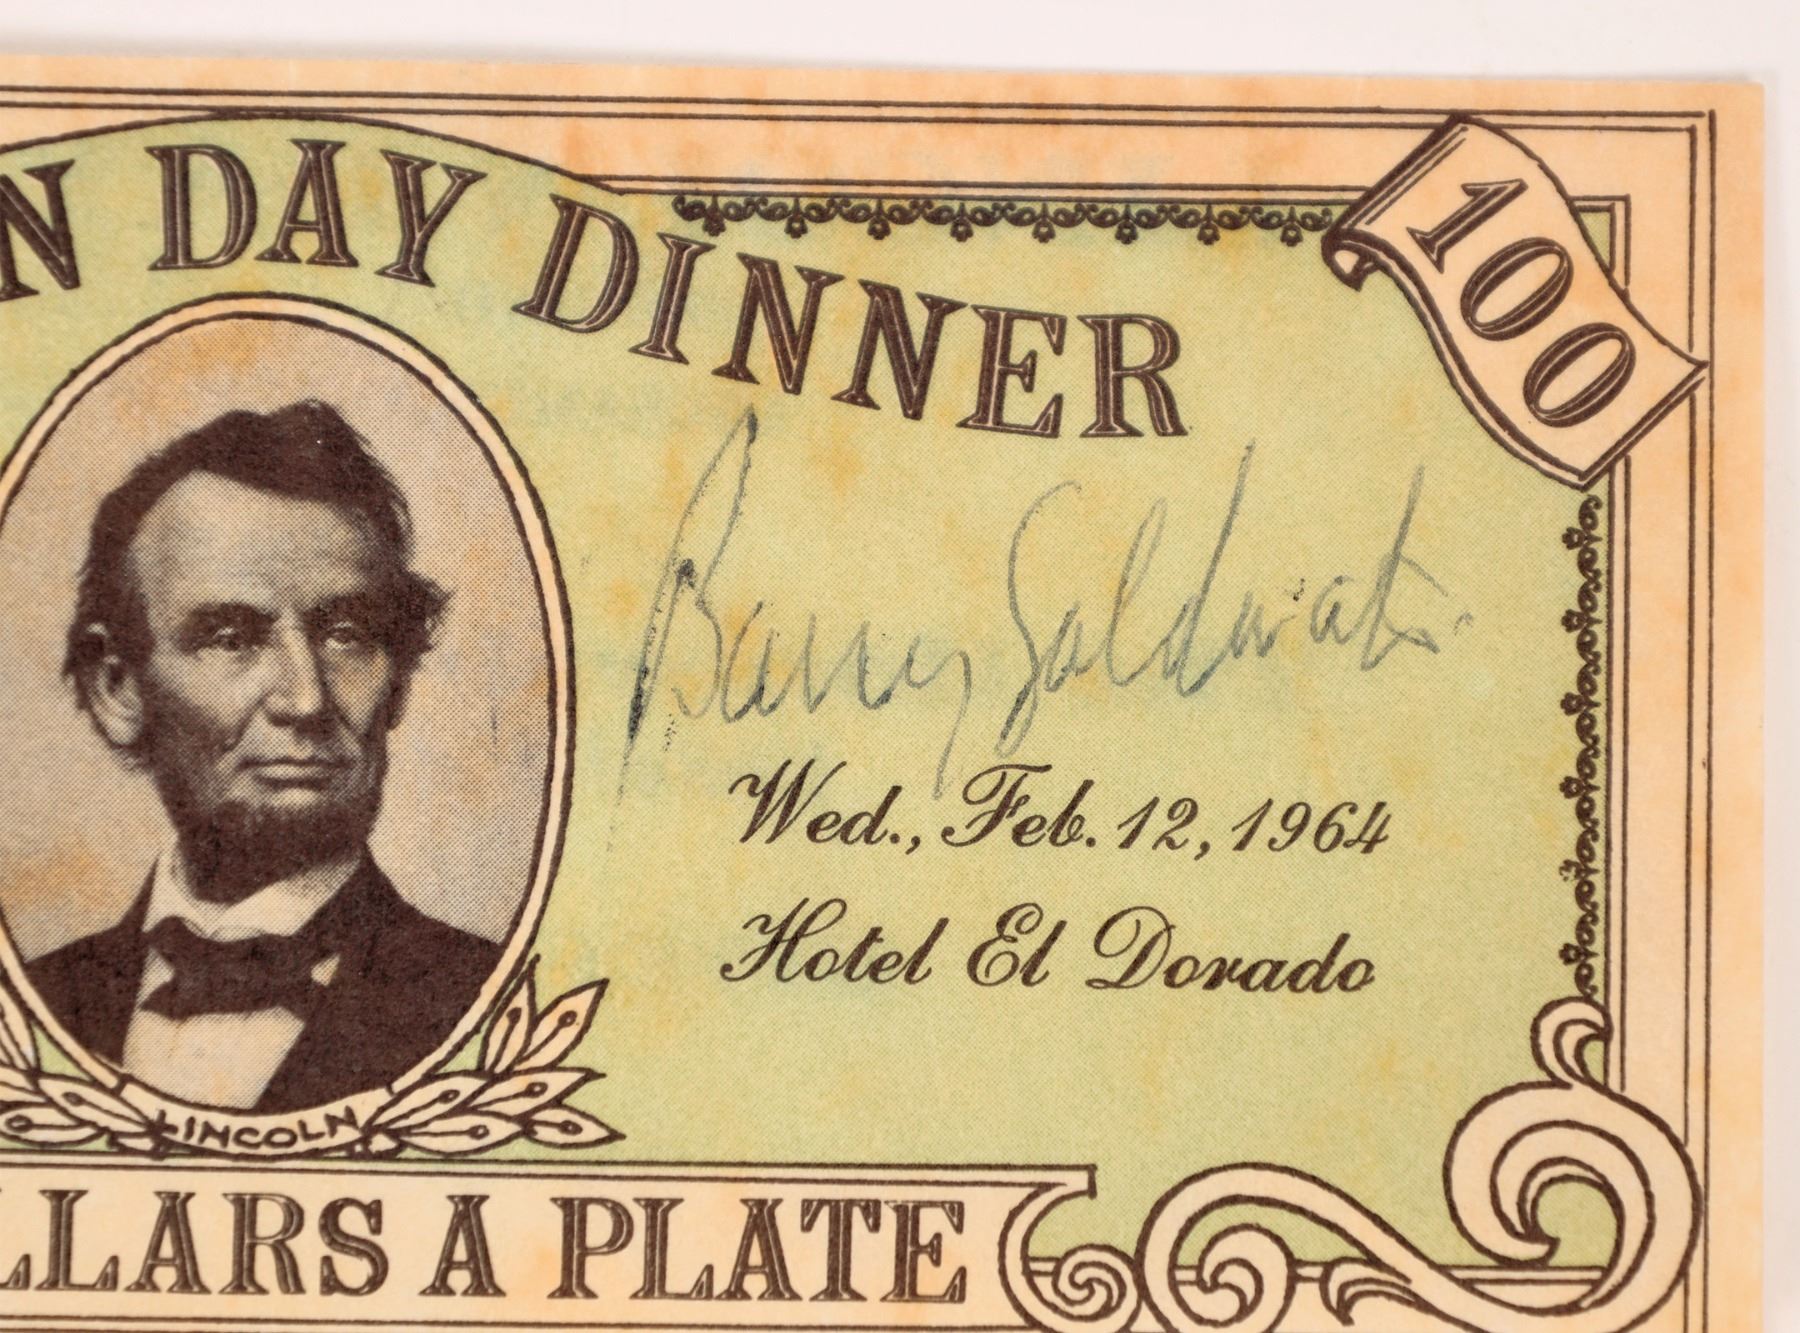 N DAY DINNER
100
Barry Goldwater
Wed., Feb. 12, 1964
Hotel El Dorado
LINCOLN
LLARS A PLATE